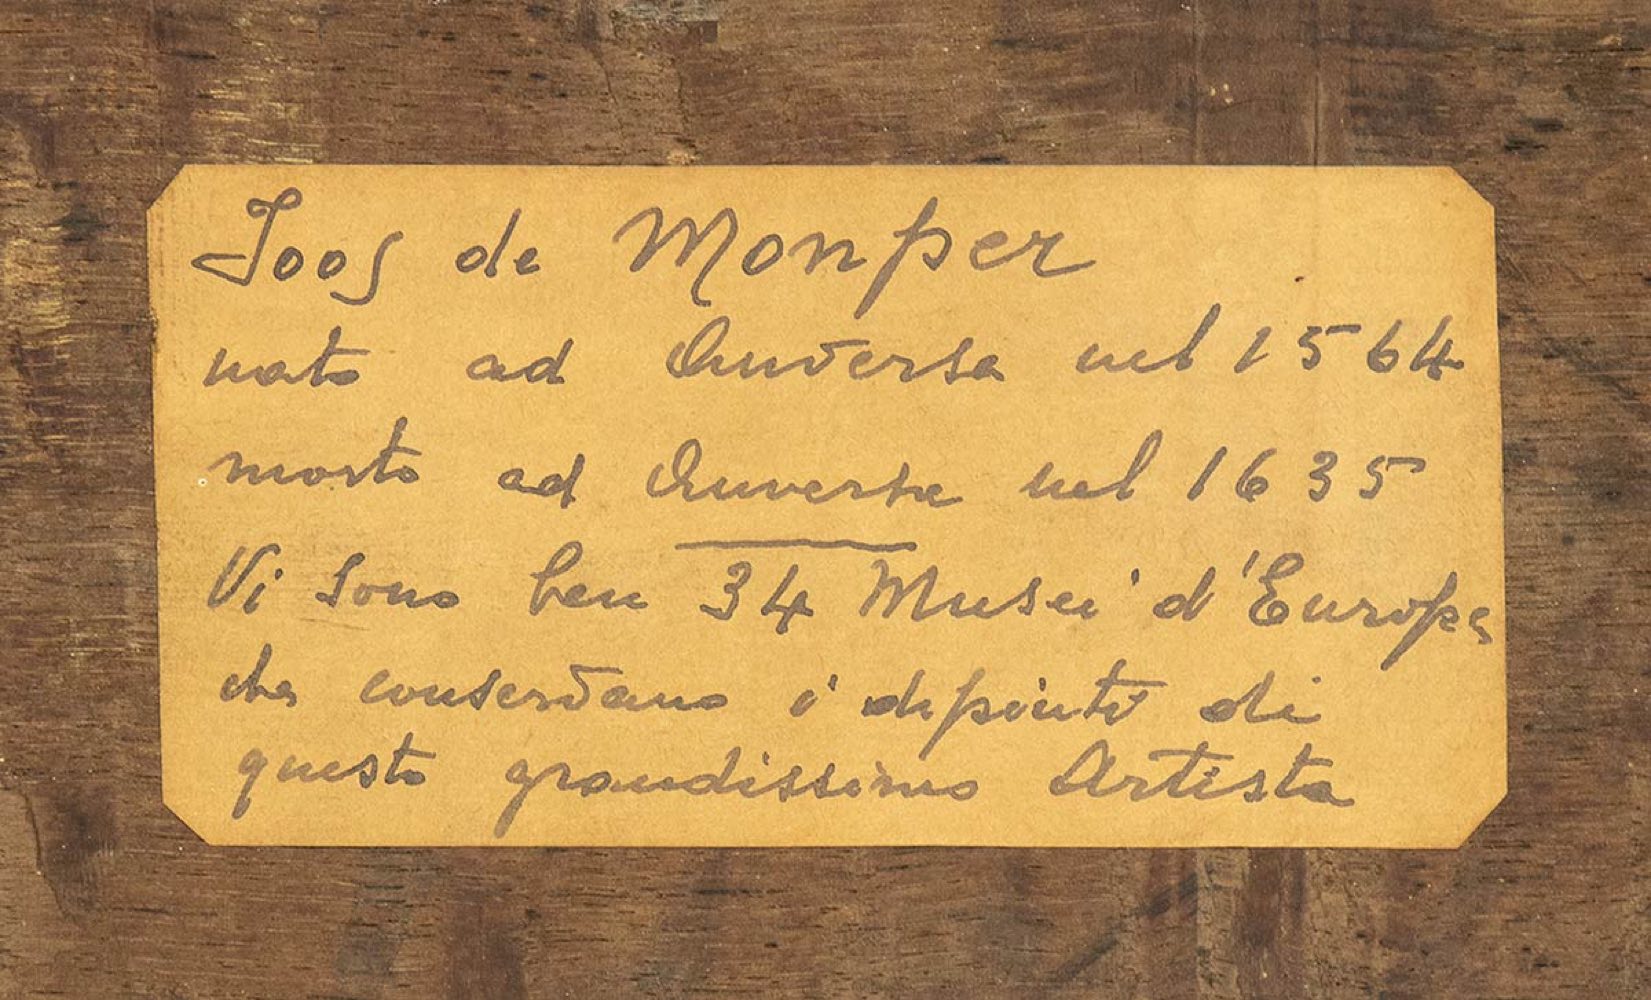 Joos de Monper
nato ad Anversa nel 1564
morto ad Anversa nel 1635
Vi sono ben 34 Musei d'Europa
che conservano i depinti di
questo grandissimo Artista